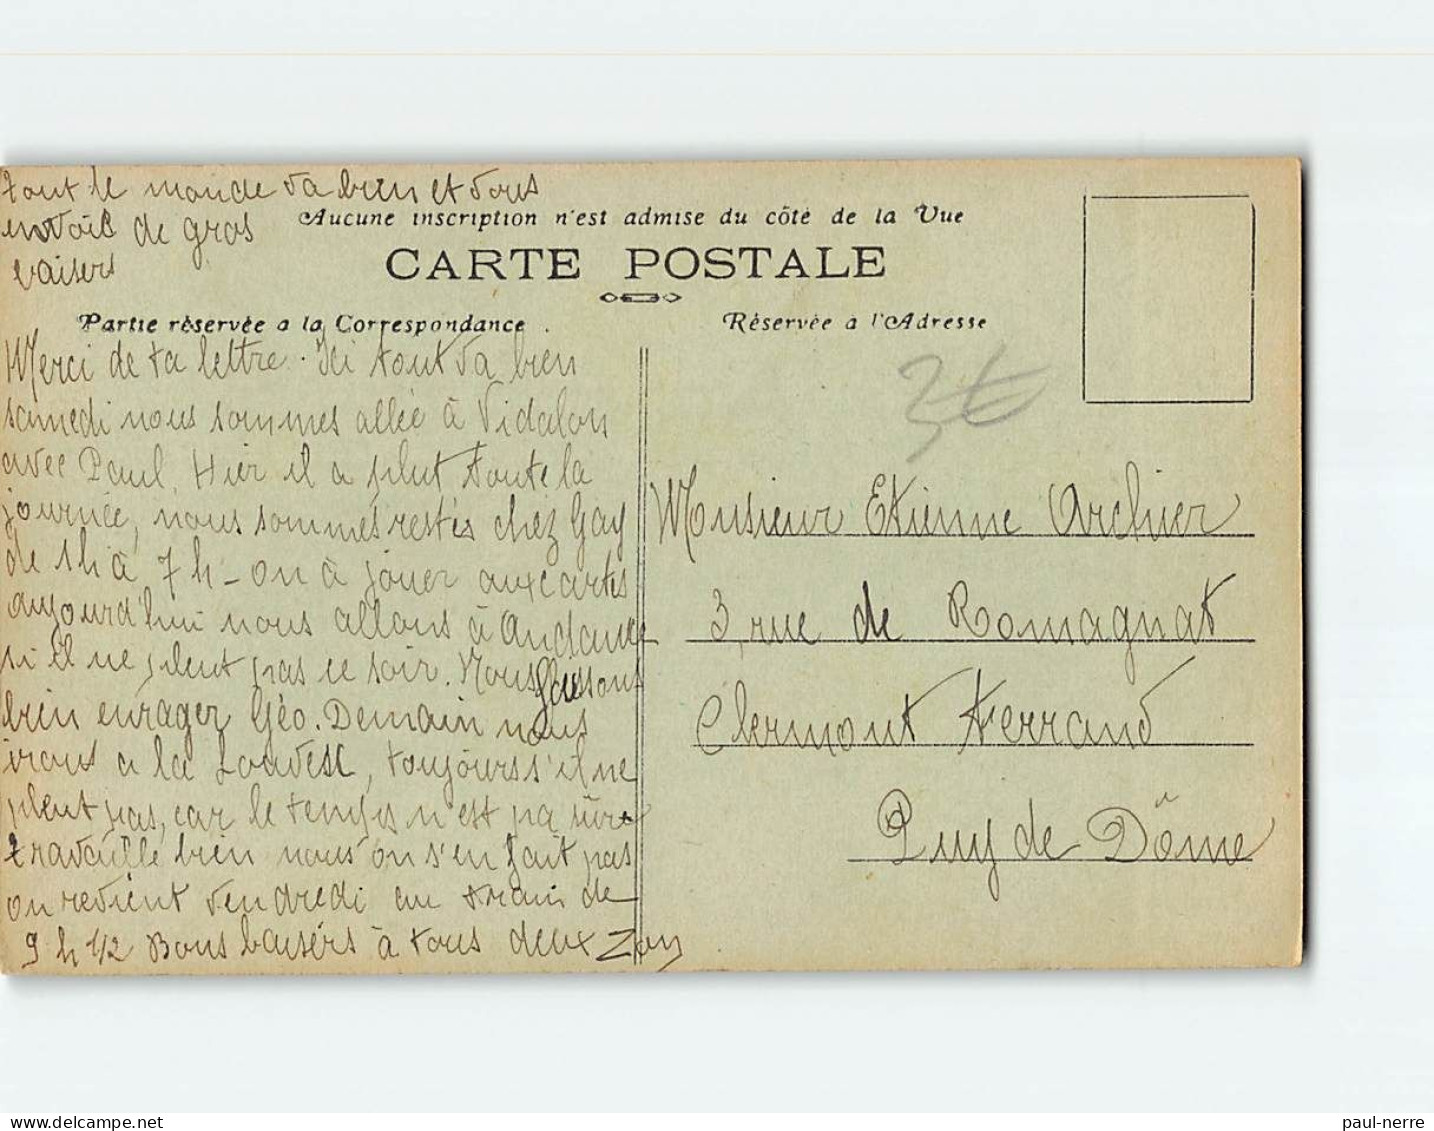 tout le monde va bien et vous
envoie de gros
baisers
Aucune inscription n'est admise du côté de la Vue
CARTE POSTALE
Partie réservée a la Correspondance .
Réservée à l'Adresse
Merci de ta lettre. Ici tout va bien
samedi nous sommes allée à Vidalon
avec Paul. Hier il a plut toute la
journée, nous sommes restés chez Gay
de 1h à 7 h - on à jouer aux cartes
aujourd'hui nous allons à Andance
si il ne pleut pas ce soir. Nous faissons
bien enrager Géo. Demain nous
irons a la Louvesc, toujours s'il ne
pleut pas, car le temps n'est pa sûr
travaille bien nous on s'en fait pas
on revient vendredi au train de
9 h 1/2 Bons baisers à tous deux Zon
3€
Monsieur Etienne Archier
3, rue de Romagnat
Clermont Ferrand
Puy de Dôme
paul-nerre